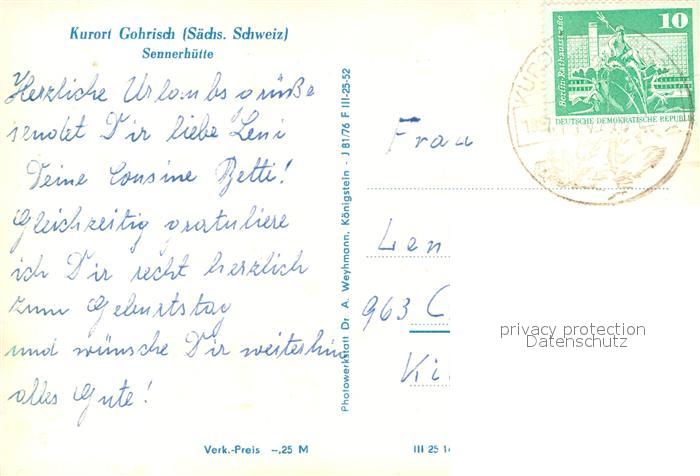 Kurort Gohrisch (Sächs. Schweiz)
Sennerhütte
Herzliche Urlaubsgrüße
sendet Dir liebe Leni
Deine Cousine Betti!
Gleichzeitig gratuliere
ich Dir recht herzlich
zum Geburtstag
und wünsche Dir weiterhin
alles Gute!
Verk.-Preis -,25 M
Photowerkstatt Dr. A. Weyhmann, Königstein - J 81/76 F III-25-52
10
Berlin-Rathausstraße
DEUTSCHE DEMOKRATISCHE REPUBLIK
Frau
Len
963 C
Ki
privacy protection
Datenschutz
III 25 1